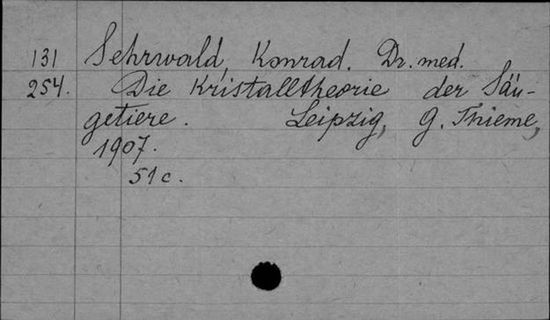 131 Sehrwald, Konrad. Dr. med.
254. Die Kristalltheorie der Säu-
getiere. Leipzig, G. Thieme,
1907.
51 c.